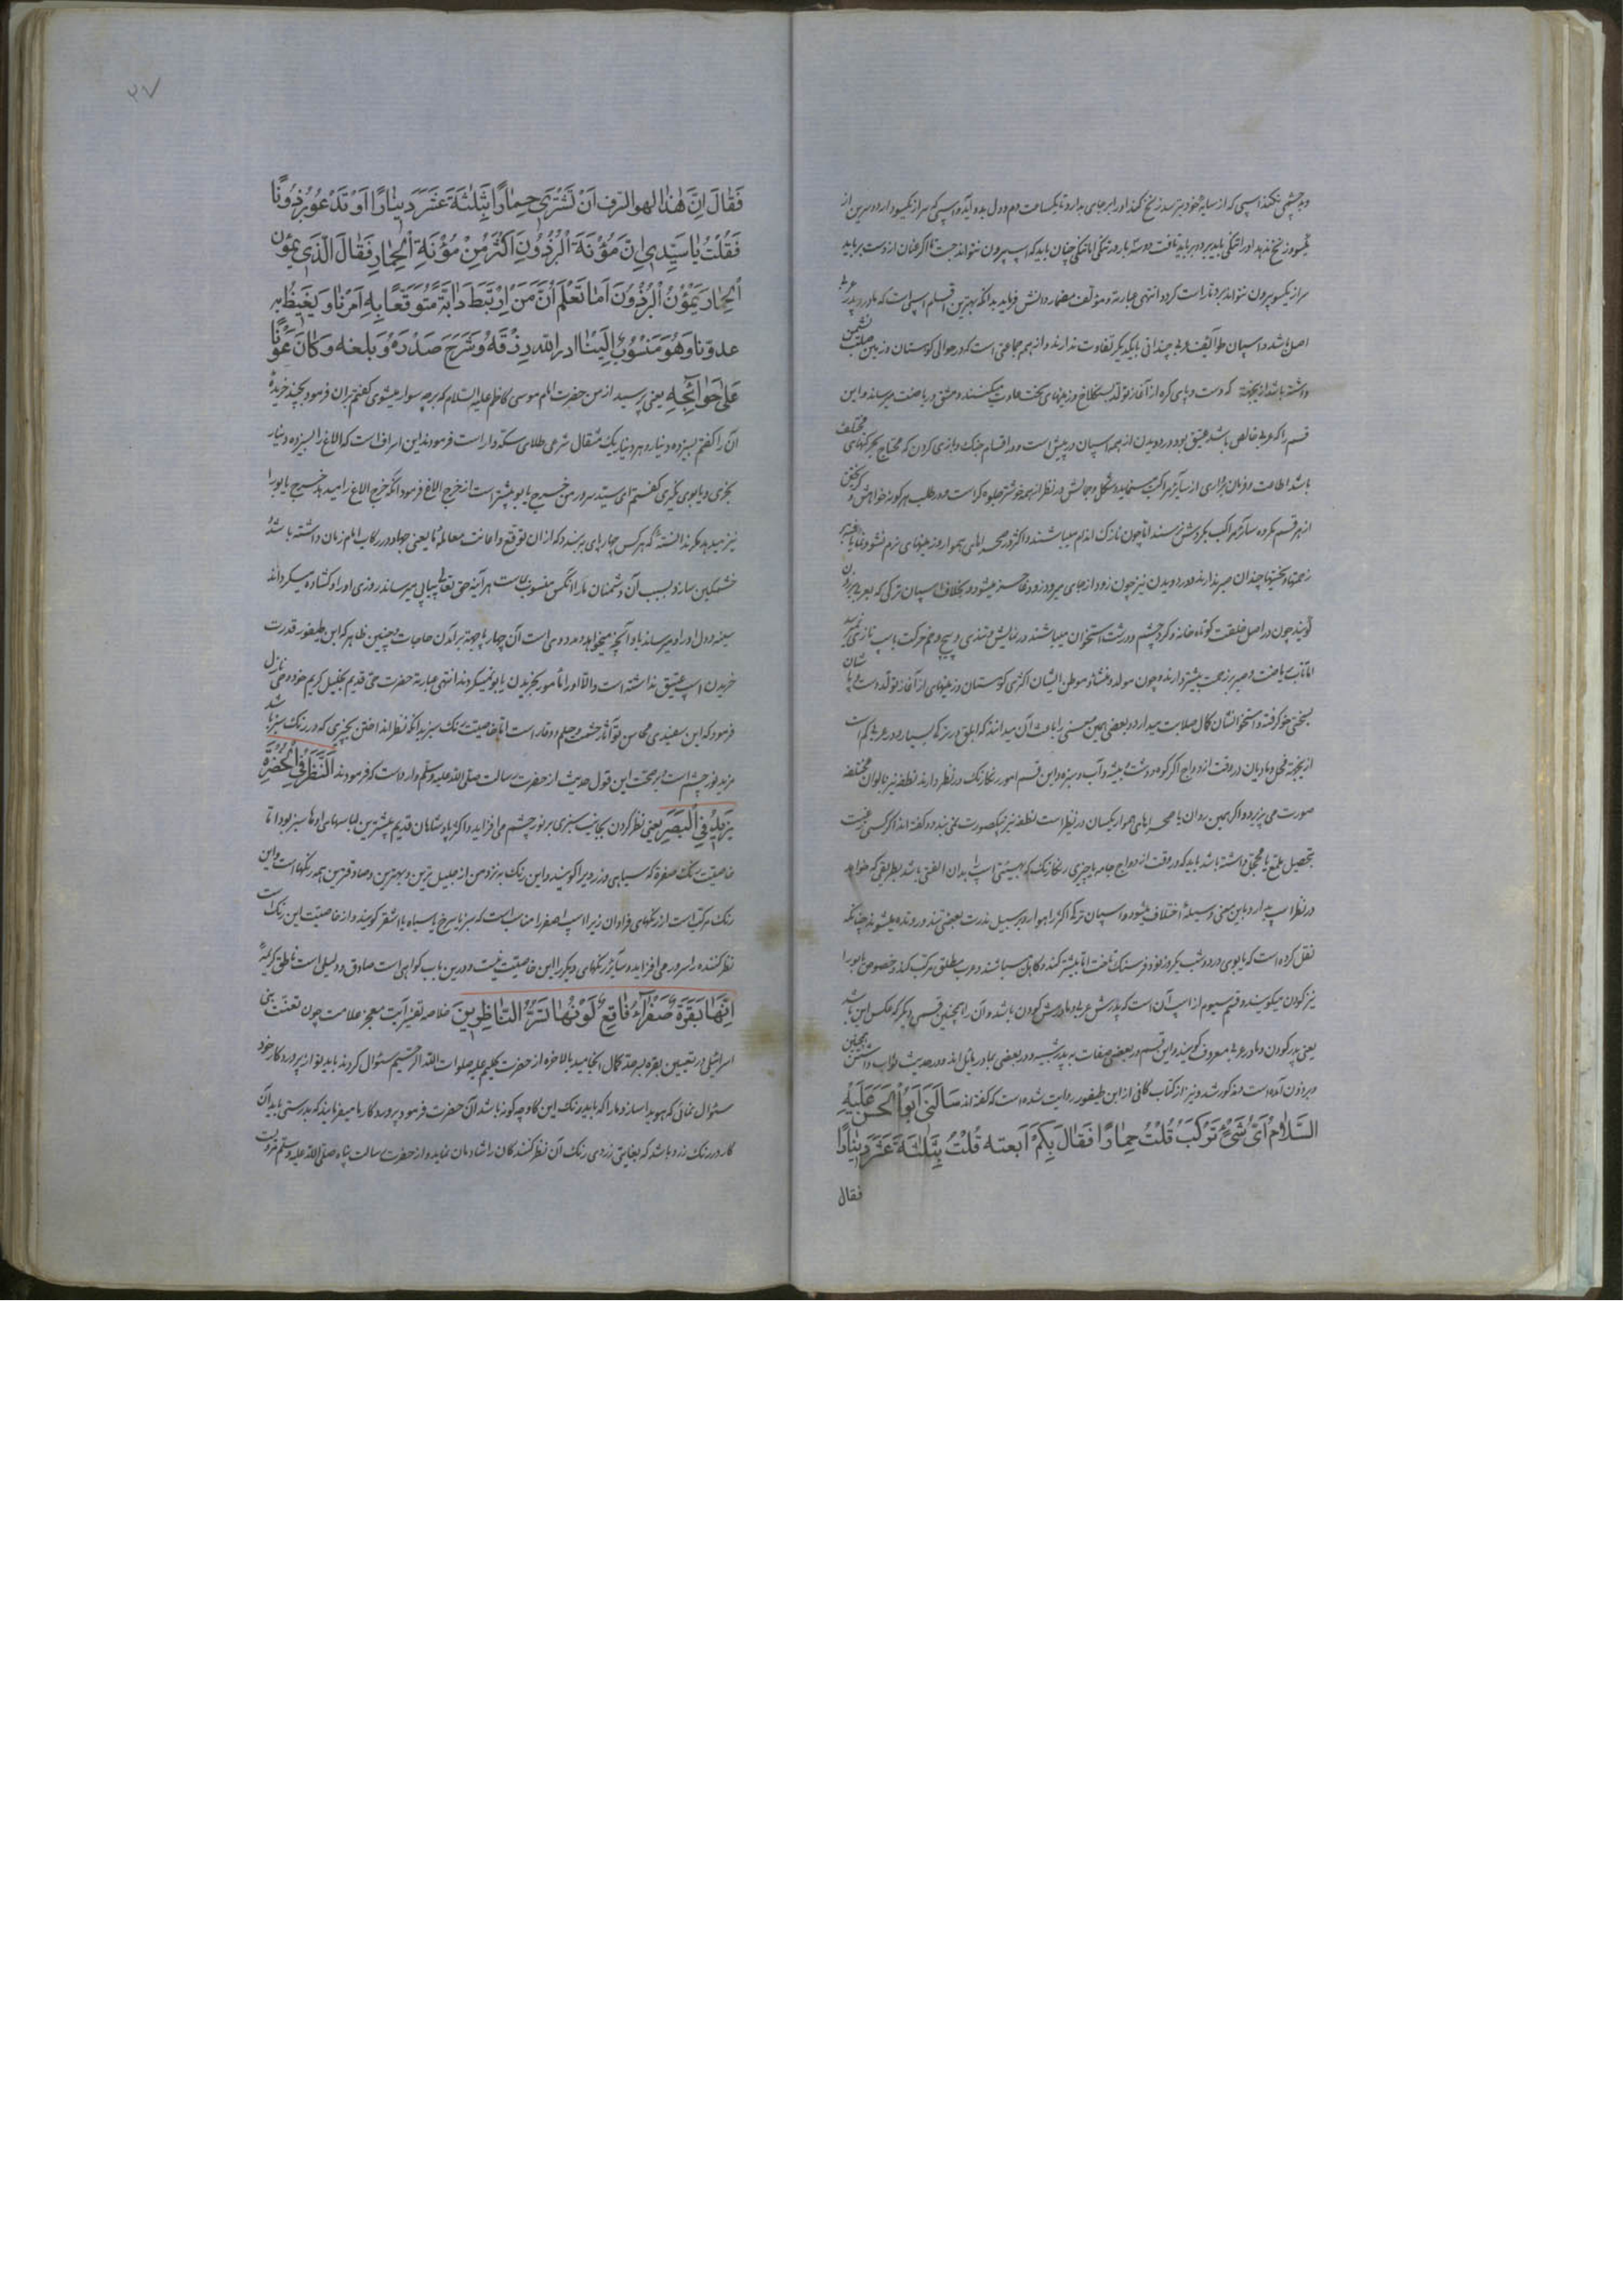 و بد چشمی نکند اسپی که از سایه خود بترسد زنخ کند او را بر جای بدارد تا یکساعت دم و دل بدو آید و اسپی که سر از یکسو دارد و سرین از
یکسو زنخ ندهد او را تنگی باید برد و بر باید تافت دو سه بار در تنگی اما تنگی چنان باید که اسپ بیرون نتواند جست تا اگر عنان از دست برباید
سر از یکسو بیرون نتواند برد تا راست کردد انتهی عبارته و مؤلف مضمار دانش فرماید بدانکه بهترین اقسام اسپی است که مادر و پدر عربی
اصل باشد و اسپان طوائف عربی چندانی با یکدیگر تفاوت ندارند و از همه جماعتی است که در حوالی کوهستان و زمین صلب نشیمن
داشته باشد از بجهة که دست و پای کره از آغاز تولد بسنکلاخ و زمینهای سخت عادت میکنند و مشق و ریاضت میرساند و این
قسم را که عربی خالص باشد عتیق بود و در دویدن از همه اسپان در پیش است و در اقسام جنک و بازی کردن که محتاج بحرکتهای مختلف
باشد اطاعت و فرمان برداری از سایر مراکب بیش مینماید و شکل و جمالش در نظر از همه خوشتر جلوه کر است و در طلب هر کونه خواهش و کریختن
از هر قسم مکروه سایر مراکب بکردش نرسند اما چون نازک اندام میباشند و اکثر در صحراهای هموار و زمینهای نرم نشو و نما یافته
زحمتها و سختیها چندان صبر ندارند و در دویدن نیز چون زود از جای میرود زود عاجز میشود و بخلاف اسپان ترکی که بعربی برذون
گویند چون در اصل خلقت کوتاه خانه و کرد چشم و درشت استخوان میباشند در نمایش و تندی و پیچ و خم حرکت باسپ تازی نمیرسد
اما تاب ریاضت و صبر بر زحمت بیشتر دارند چون مولد و منشاء و موطن ایشان اکثری کوهستان و زمینهای از آغاز تولد دست و پا شان
بسختی خو کرفته و استخوانشان کمال صلابت میدارد و بعضی همین معنی را باعث آن میدانند که ابلق در ترک بسیار و در عربی کم است
از بجهة فحل و مادیان در وقت ازدواج اگر کوه و دشت و بیشه و آب و سبزه و این قسم امور رنکارنک در نظر دارند نطفه نیز بالوان مختلفه
صورت می پزیرد و اگر همین روان با صحراهای هموار یکسان در نظر است نطفه نیز بیکصورت می بندد و گفته اند اگر کسی رغبت
بتحصیل ملمع یا محجل داشته باشد باید که در وقت ازدواج جامه یا چیزی رنکارنک که هیئتی اسپ را بدان الفتی باشد بطریقی که خواهد
در نظر اسپ بدارد و باین معنی وسیلۀ اختلاف میشود و اسپان ترک اکثر راهوار و بر سبیل ندرت بعضی تند و رونده میشوند چنانکه
نقل کرده است که یابوی در دو شب یکروز نود فرسنک تاخت اما بیشتر کند و کاهل میباشند و عرب مطلق مرکب کند و خصوص یابو را
نیز کودن میکویند و قسم سیوم از اسپ آن است که پدرش عربی و مادرش کودن باشد و آن را هجین و قسمی دیگر که عکس این باشد
یعنی پدر کودن و مادر عربی معروف کویند و این قسم در بعضی صفات به پدر شبیه و در بعضی بمادر مایل اند و در حدیث ثواب داشتن هجین
و برذون آمده است مذکور شد و نیز از کتاب کافی از ابن طیفور روایت شده است که گفته اند سَأَلَنی اَبُوالْحَسَنِ عَلَیْهِ
السَّلامُ اَیَّ شَیْءٍ تَرْکَبُ قُلْتُ حِمارًا فَقالَ بِکَمْ ابتعته قُلْتُ بِثَلاثَةَ عَشَرَ دِینارًا
فقال
۲۷
فَقالَ اِنَّ هٰذا لهو السّرف اَنْ تَشْتَرِیَ حِمارًا بِثَلثَةَ عَشَرَ دینارًا اَوْ تَدَعَ بِرْذَوْنًا
فَقُلْتُ یا سَیِّدی اِنَّ مَؤُنَةَ الْبِرْذَوْنِ اَکْثَرُ مِنْ مَؤُنَةِ الْحِمارِ فَقالَ الَّذی یَمُؤنُ
الْحِمارَ یَمُؤنُ الْبِرْذَوْنَ اَما تَعْلَمُ اَنَّ مَنِ ارْتَبَطَ دابَّةً مُتَوَقِّعًا بِهِ اَمْرَنا وَ یَغیظُ بِه
عدوّنا وَ هُوَ مَنْسُوبٌ اِلَیْنا ادر الله رِزْقَهُ وَ شَرَحَ صَدْرَهُ وَ بلغه وَ کانَ عَوْنًا
عَلیٰ حَوائِجِهِ یعنی پرسید از من حضرت امام موسی کاظم علیه السلام که بر چه سوار میشوی کفتم بر آن فرمود بچند خریدهٔ
آن را کفتم بسیزده دینار و هر دینار یک مثقال شرعی طلای سکه دار است فرمودند این اسراف است که الاغ را بسیزده دینار
بخری و یابوی نگیری کفتم ای سید سرور من خرج یابو بیشتر است از خرج الاغ فرمود آنکه خرج الاغ را میدهد خرج یابو را
نیز میدهد مگر ندانسته که هر کس چهارپای بر بندد که از آن توقع و اعانت معامله ما یعنی جهاد در رکاب امام زمان داشته باشد و
خشمگین سازد بسبب آن دشمنان ما را و آنکس منسوب بماست هر آینه حق تعالی پیاپی میرساند روزی او را و کشاده میکرداند
سینه و دل او را و میرساند باو آنچه میخواهد و مددی است آن چهارپا جهة برآمدن حاجات و چنین ظاهر که ابن طیفور قدرت
خریدن اسپ عتیق نداشته است و الا او را مأمور بخریدن یابو نمیکردند انتهی عبارته حضرت حق قدیم بخلیل کریم خود وحی نازل
فرمود که این سفیدی محاسن تو آثار حشمت و حلم و وقار است اما خاصیت رنک سبز بدانکه نظر انداختن بچیزی که در رنک سبز باشد
مزید نور چشم است بر صحت این قول حدیث از حضرت رسالت صلی الله علیه و سلم وارد است که فرمودند اَلنَّظَرُ فِی الْخُضْرَةِ
یَزیدُ فِی الْبَصَرِ یعنی نظر کردن بجانب سبزی بر نور چشم می افزاید و اکثر پادشاهان قدیم بیشترین لباسهای اوها سبز بود اما
خاصیت رنک صفرة که سیاهی و زرد برا کویند و این رنک به نزد من از جلیل ترین و بهترین و صادقترین همه رنکها است و این
رنک مرکب است از رنکهای فراوان زیرا اسپ اصفر را مناسب است که سبز یا سرخ یا سیاه یا اشقر کویند و از خاصیت این رنک است
نظر کننده را سرور می افزاید و سایر رنکهای دیگر را این خاصیت نیست و درین باب کواهی است صادق و دلیلی است ناطق کریمهٔ
اِنَّها بَقَرَةٌ صَفْراءُ فاقِعٌ لَوْنُها تَسُرُّ النّاظِرینَ خلاصه تفسیر آیت معجز علامت چون تعنت بنی
اسرائیل در تعیین بقره بسر حد کمال انجامید بالاخره از حضرت کلیم علیه صلوات الله الرحیم سئوال کردند باید تو از پروردکار خود
سئوال نمائی که هویدا سازد ما را که باید رنک این کاو چه کونه باشد آن حضرت فرمود پروردکار ما میفرماید که بدرستی باید آن
کاو در رنک زرد باشد که بغایتی زردی رنک آن نظر کنندکان را شادمان نماید و از حضرت رسالت پناه صلی الله علیه و سلم مرویست